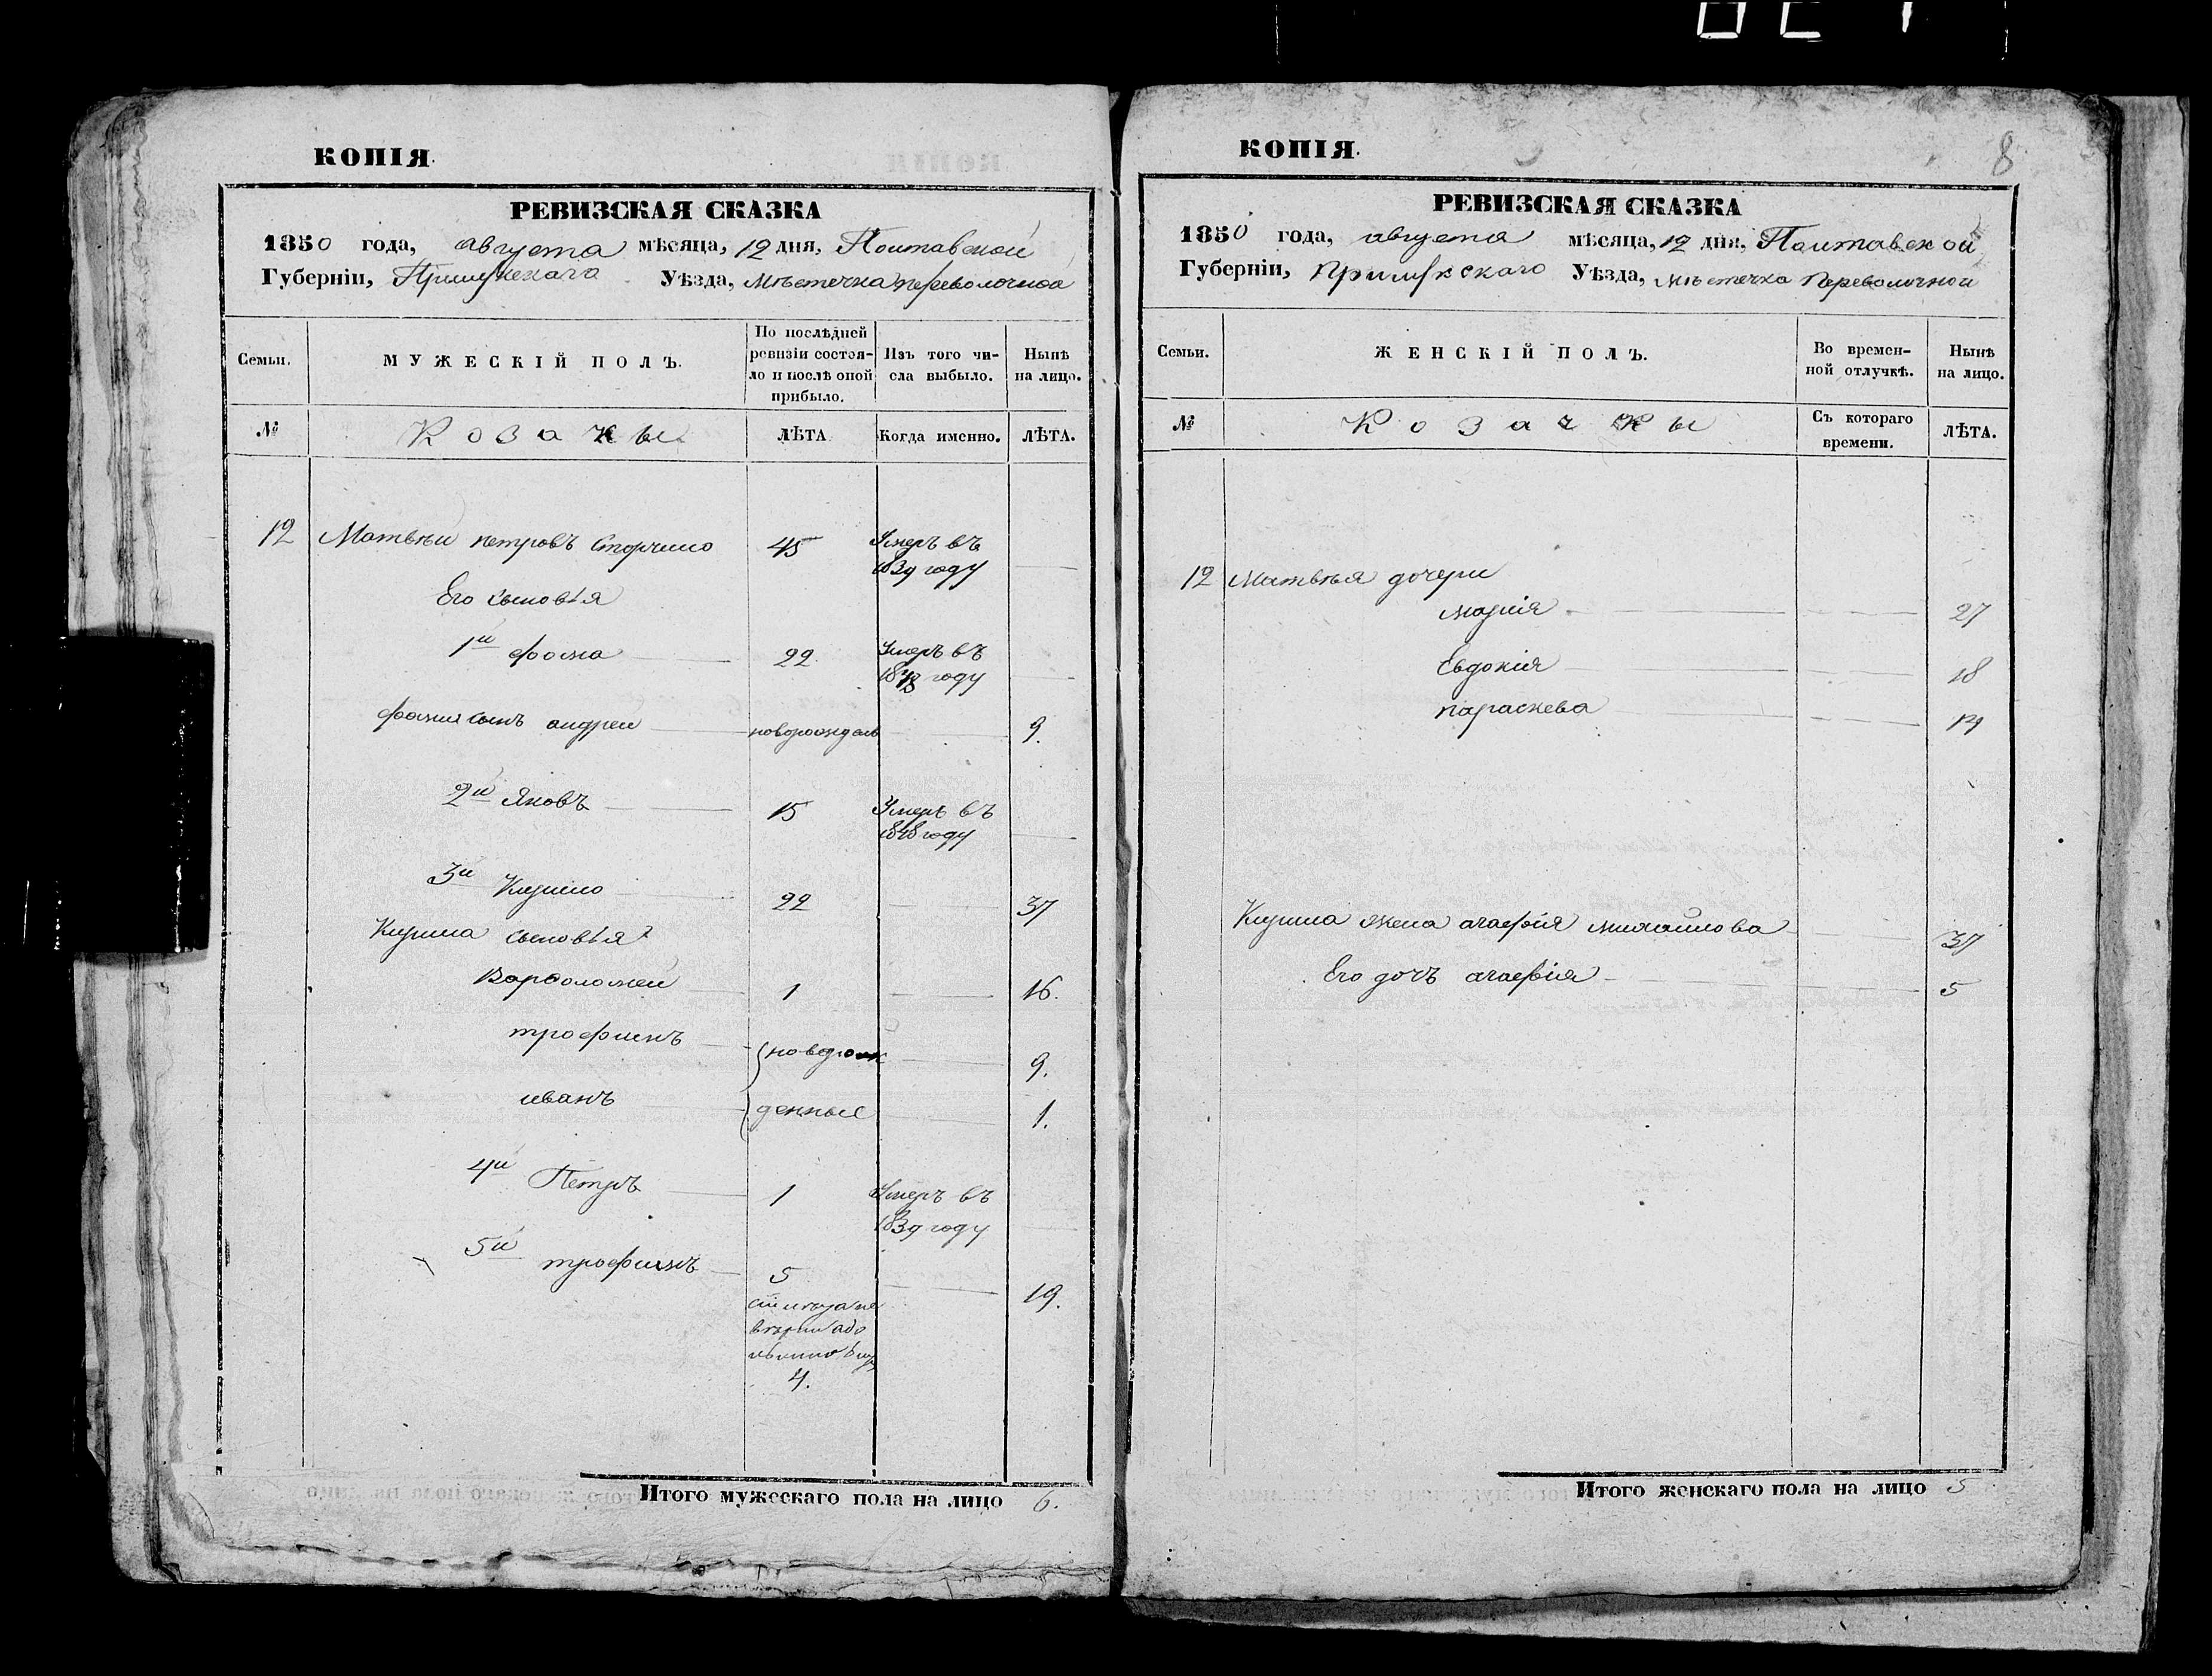 КОПІЯ.
РЕВИЗСКАЯ СКАЗКА
1850 года, августа мѣсяца, 12 дня, Полтавской
Губерніи, Прилукскаго Уѣзда, мѣстечка Переволочной
Семьи.
МУЖЕСКІЙ ПОЛЪ.
По послѣдней
ревизіи состоя-
ло и послѣ оной
прибыло.
Изъ того чи-
сла выбыло.
Нынѣ
на лицо.
№
Козаки
ЛѢТА
Когда именно.
ЛѢТА.
12 Матвѣй петровъ Сторчило 45 Умеръ въ
1839 году
Его сыновья
1й фома 22 Умеръ въ
году
фомы сынъ андрей новорожден 9.
2й Яковъ 15 Умеръ въ
1848 году
3й Кирило 22 37
Кирила сыновья
Варфоломей 1 16.
трофимъ новорож 9.
иванъ денные 1.
4й Петръ 1 Умеръ въ
1839 году
5й трофимъ 5 19.
4.
Итого мужескаго пола на лицо 6.
КОПІЯ.
8
РЕВИЗСКАЯ СКАЗКА
1850 года, августа мѣсяца, 12 дня, Полтавской
Губерніи, Прилукскаго Уѣзда, мѣстечка Переволочной
Семьи.
ЖЕНСКІЙ ПОЛЪ.
Во времен-
ной отлучкѣ.
Нынѣ
на лицо.
№
Козачки
Съ котораго
времени.
ЛѢТА.
12 Матвѣя дочери
марія 27
Евдокія 18
параскева 14
Кирила жена агафія михайлова 37
Его дочъ агафія 5
Итого женскаго пола на лицо 5